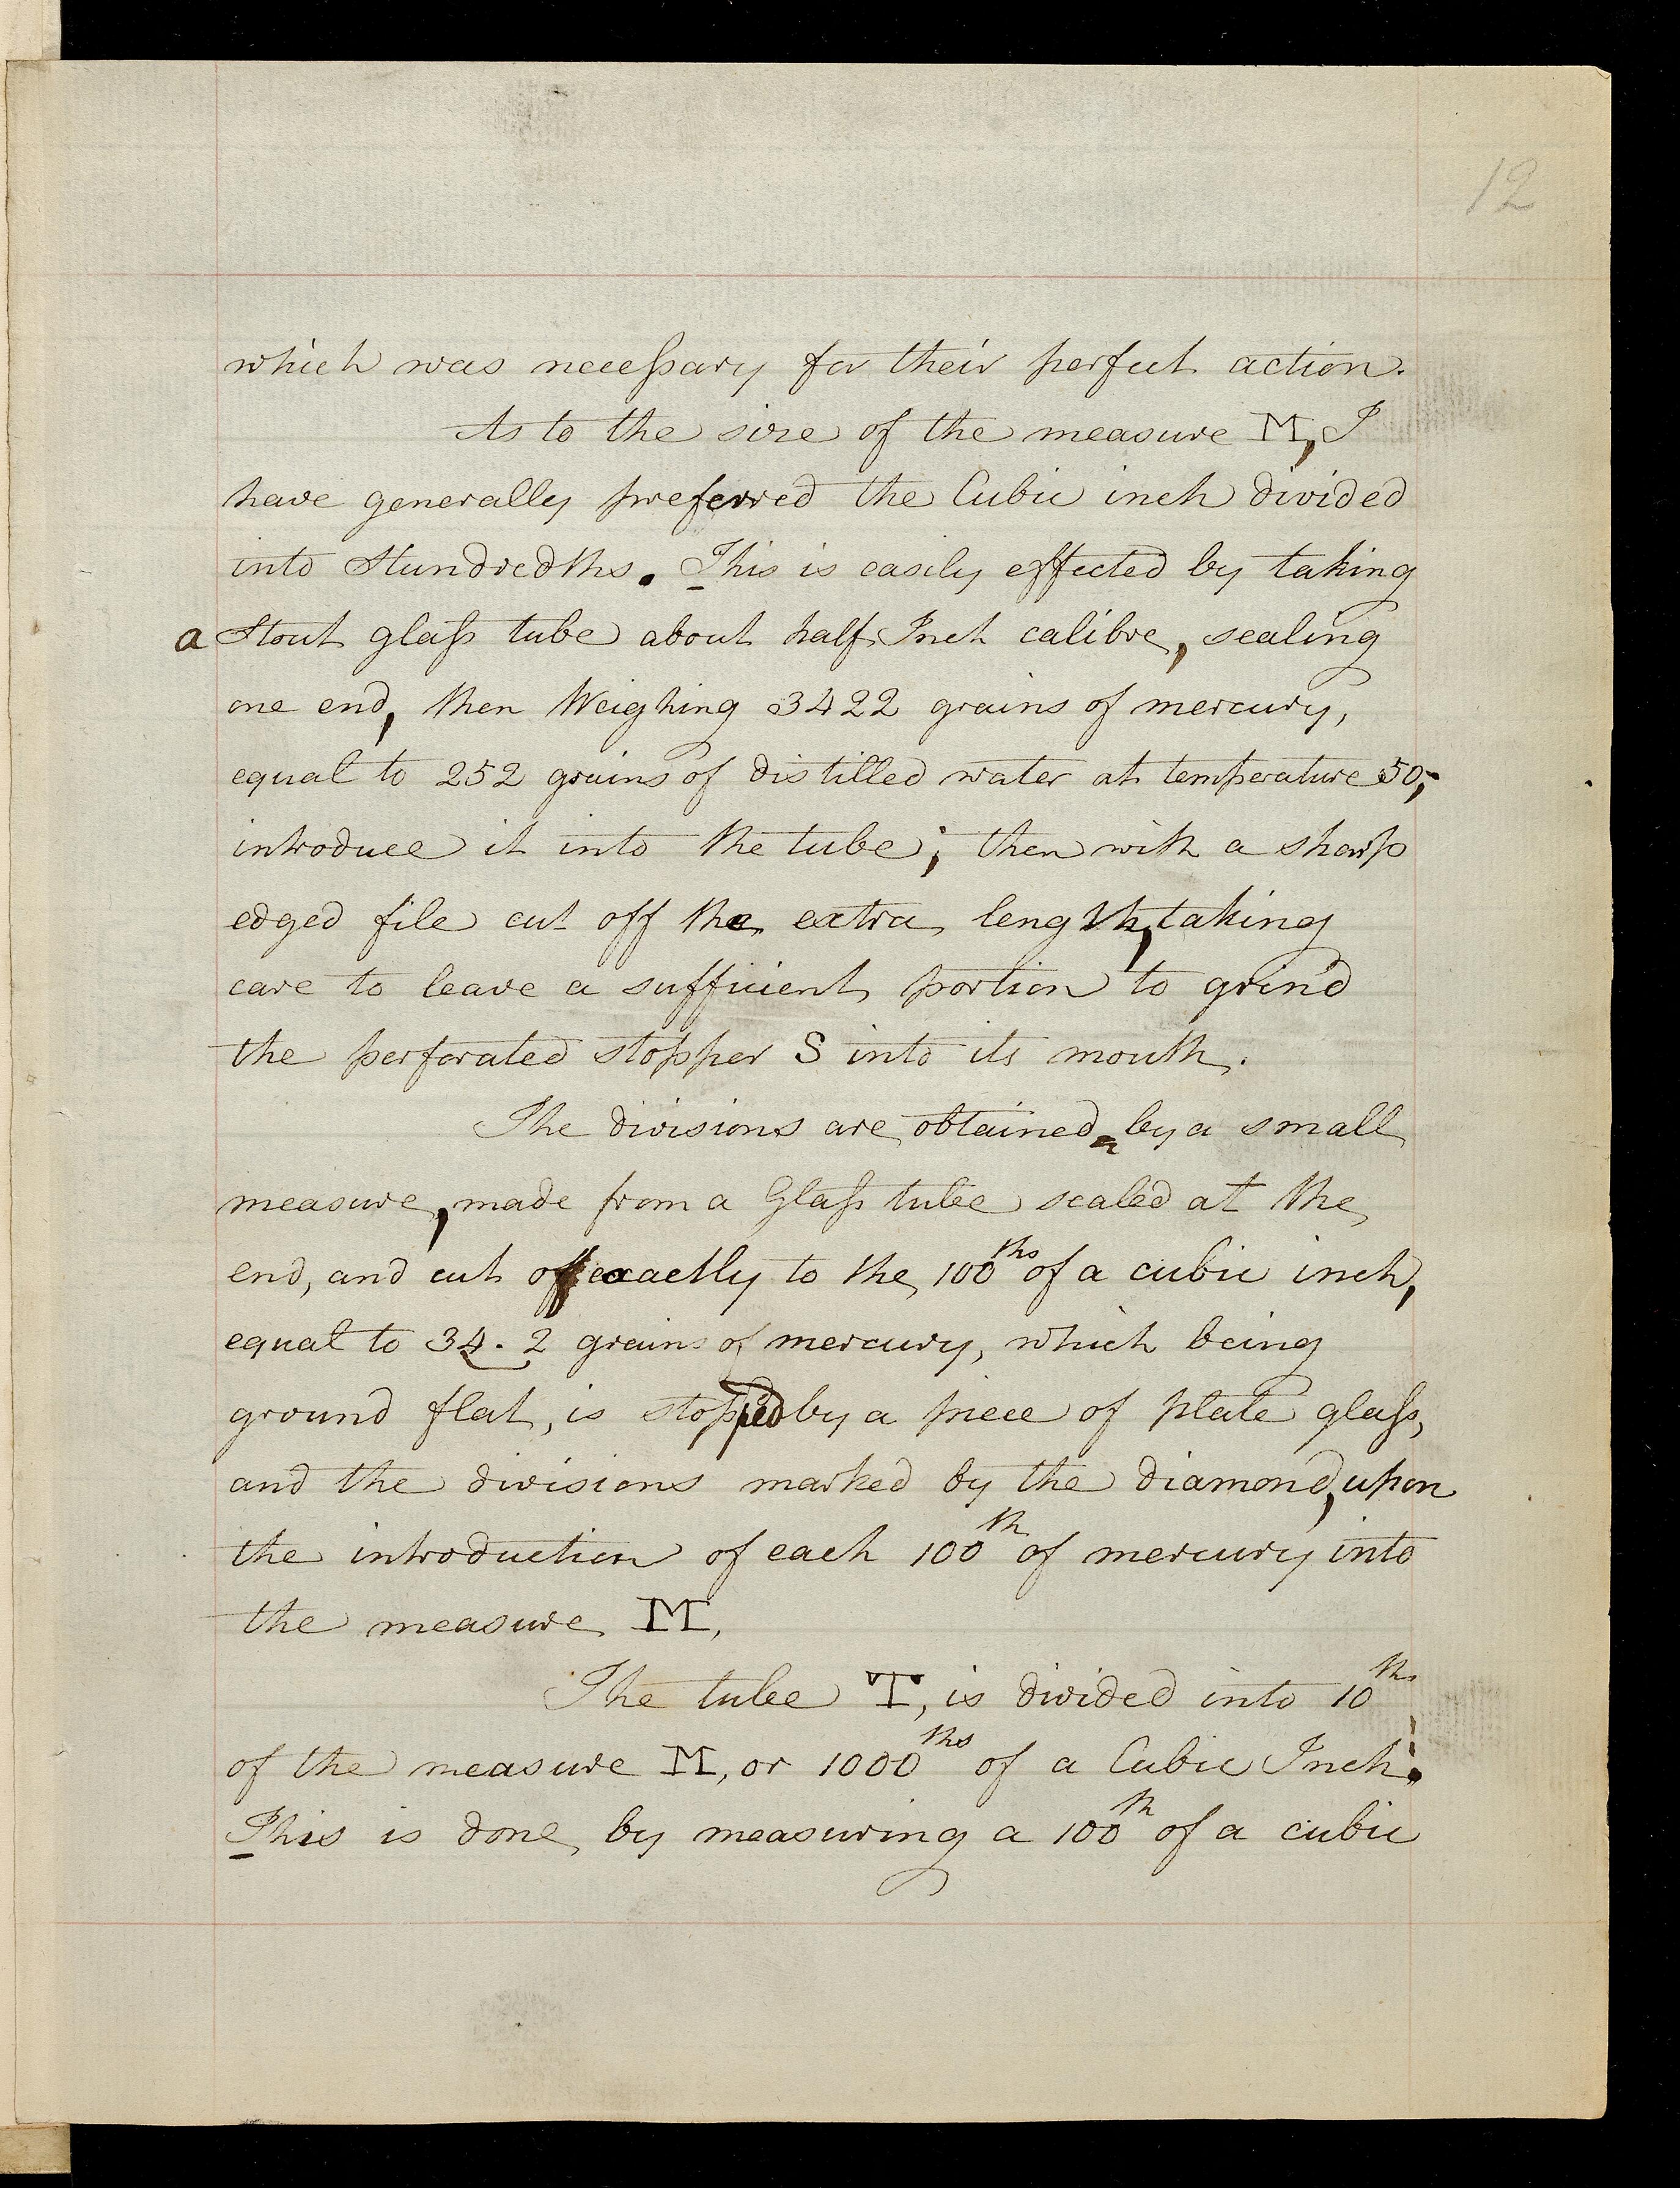 12
which was neceſsary for their perfect action.
As to the size of the measure M, I
have generally preferred the Cubic inch divided
into Hundredths. This is easily effected by taking
a Stout glaſs tube about half Inch calibre, sealing
one end, then Weighing 3422 grains of mercury,
equal to 252 grains of distilled water at temperature 50;
introduce it into the tube; then with a sharp
edged file cut off the extra length, taking
care to leave a sufficient portion to grind
the perforated stopper S into its mouth.
The divisions are obtained by a small
measure, made from a Glaſs tube sealed at the
end, and cut off exactly to the 100ths of a cubic inch,
equal to 34.2 grains of mercury, which being
ground flat, is stopped by a piece of plate glaſs,
and the divisions marked by the diamond, upon
the introduction of each 100th of mercury into
the measure M,
The tube T, is divided into 10ths
of the measure M, or 1000ths of a Cubic Inch.
This is done by measuring a 100th of a cubic